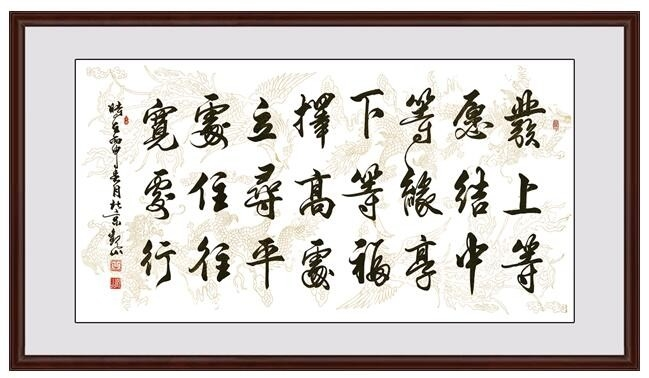 發上等
愿結中
等緣享
下等福
擇高處
立尋平
處住往
寬處行
時在丙申春月北京